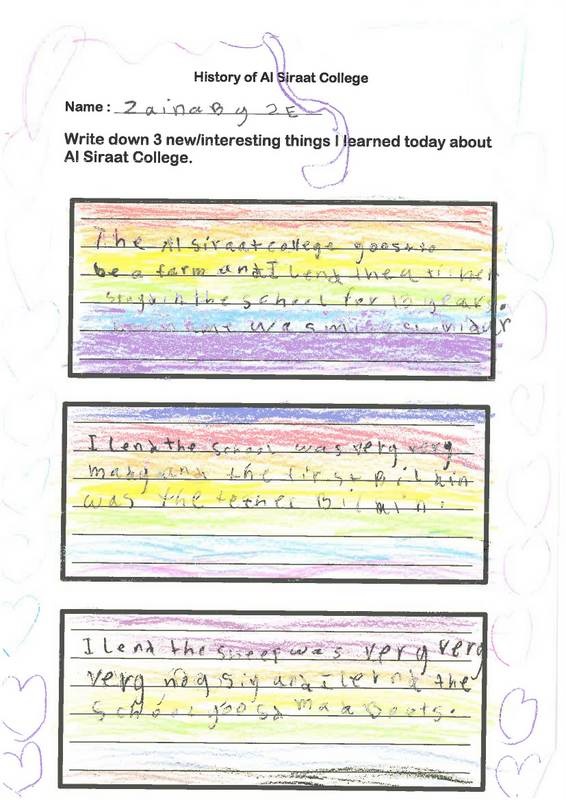 History of Al Siraat College
Name : Zainab y 2E
Write down 3 new/interesting things I learned today about
Al Siraat College.
The Al siraat college goosto
be a farm and I lend the a
stayd in the school for 10 years.
was
I lend the school was very very
mady and the first Bildin
was the
I lend the street was very very
very noysiy and I lernd the
school goosd